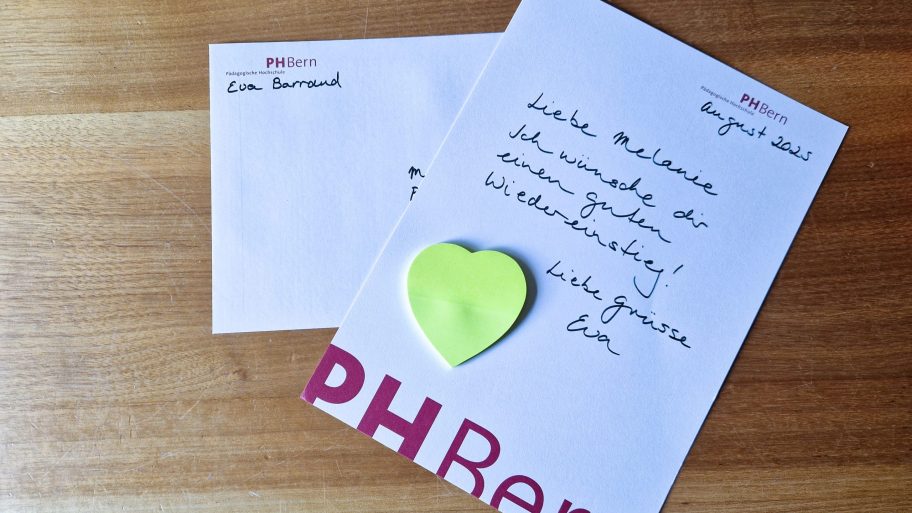 PHBern
Pädagogische Hochschule
Eva Barrand
PHBern
Pädagogische Hochschule
August 2025
Liebe Melanie
Ich wünsche dir
einen guten
Wiedereinstieg!
Liebe grüsse
Eva
PHBern